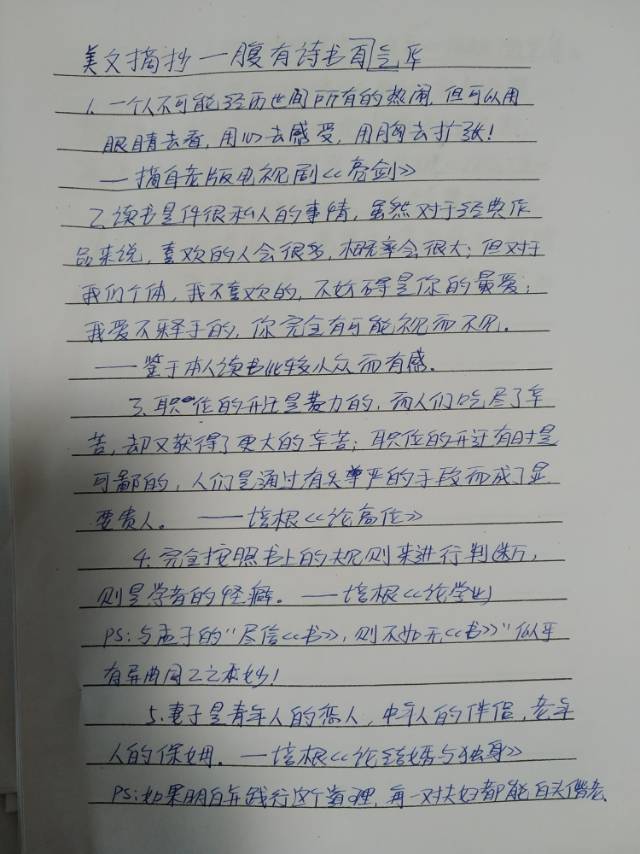 美文摘抄—腹有诗书自气华
1.一个人不可能经历世间所有的热闹,但可以用
眼睛去看,用心去感受,用胸去扩张!
—摘自老版电视剧<<亮剑>>
2.读书是件很私人的事情,虽然对于经典作
品来说,喜欢的人会很多,概率会很大;但对于
我们个体,我不喜欢的,不妨碍是你的最爱;
我爱不释手的,你完全有可能视而不见。
——鉴于本人读书比较小众而有感.
3.职位的升迁是费力的,而人们吃尽了辛
苦,却又获得了更大的辛苦;职位的升迁有时是
可鄙的,人们是通过有失尊严的手段而成了显
要贵人。——培根<<论高位>>
4.完全按照书上的规则来进行判断,
则是学者的怪癖。——培根<<论学业>>
PS:与孟子的"尽信<<书>>,则不如无<<书>>"似乎
有异曲同工之本妙!
5.妻子是青年人的恋人,中年人的伴侣,老年
人的保姆.—培根<<论结婚与独身>>
PS:如果明白并践行这个道理,每一对夫妇都能白头偕老.